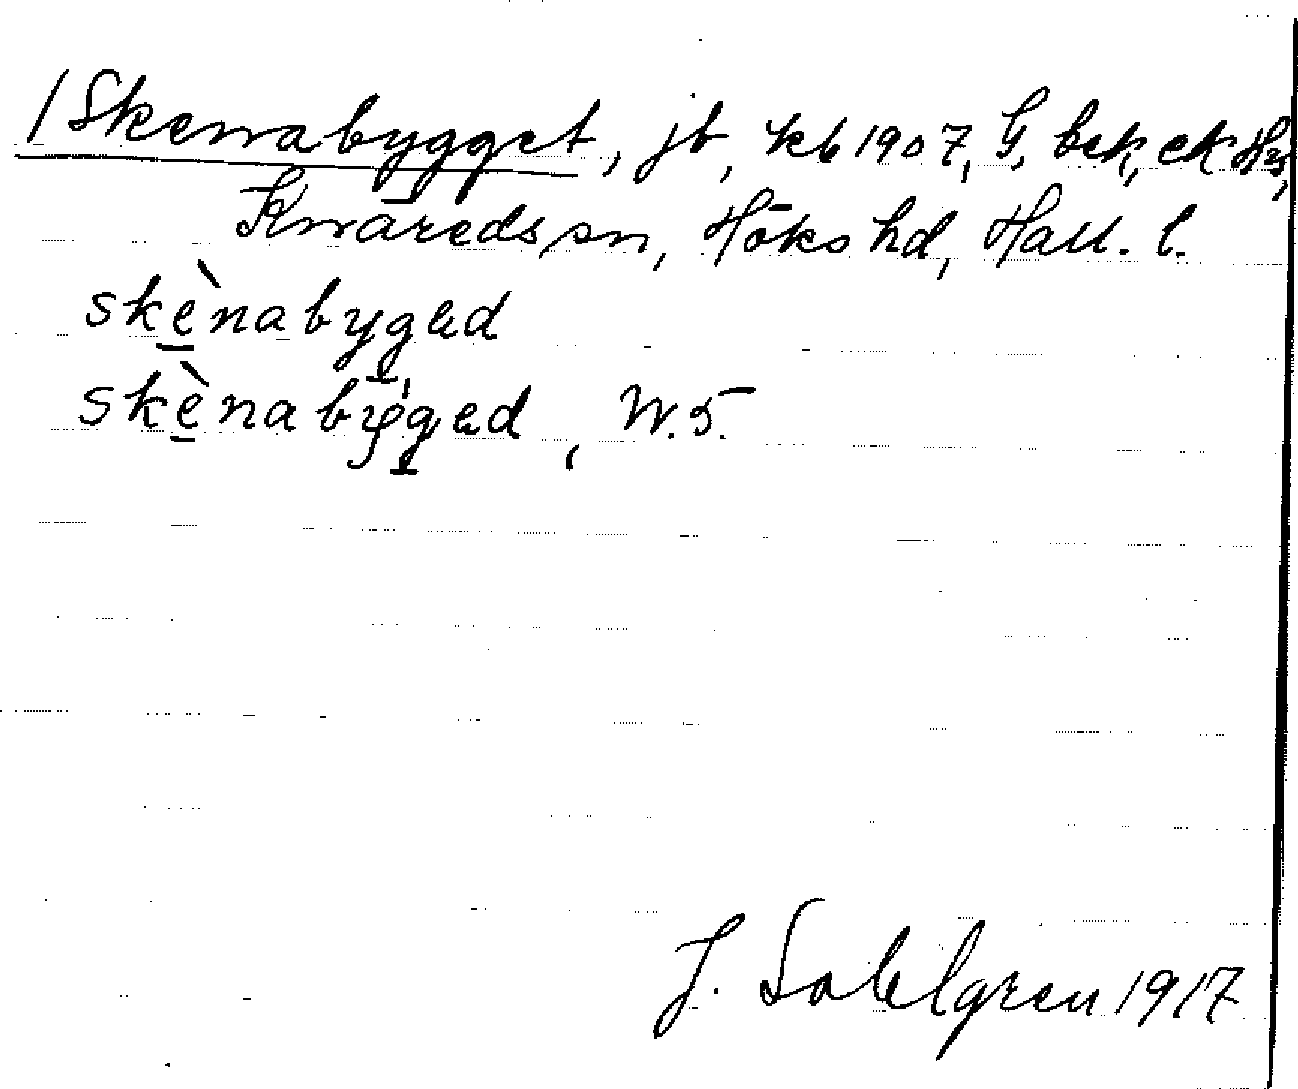 /Skenabygget, jb, kb 1907, G, bek, ek Hu,
Knäreds sn, Höks hd, Hall. l.
skènabyged
skènabyged, W. 5.
J. Sahlgren 1917